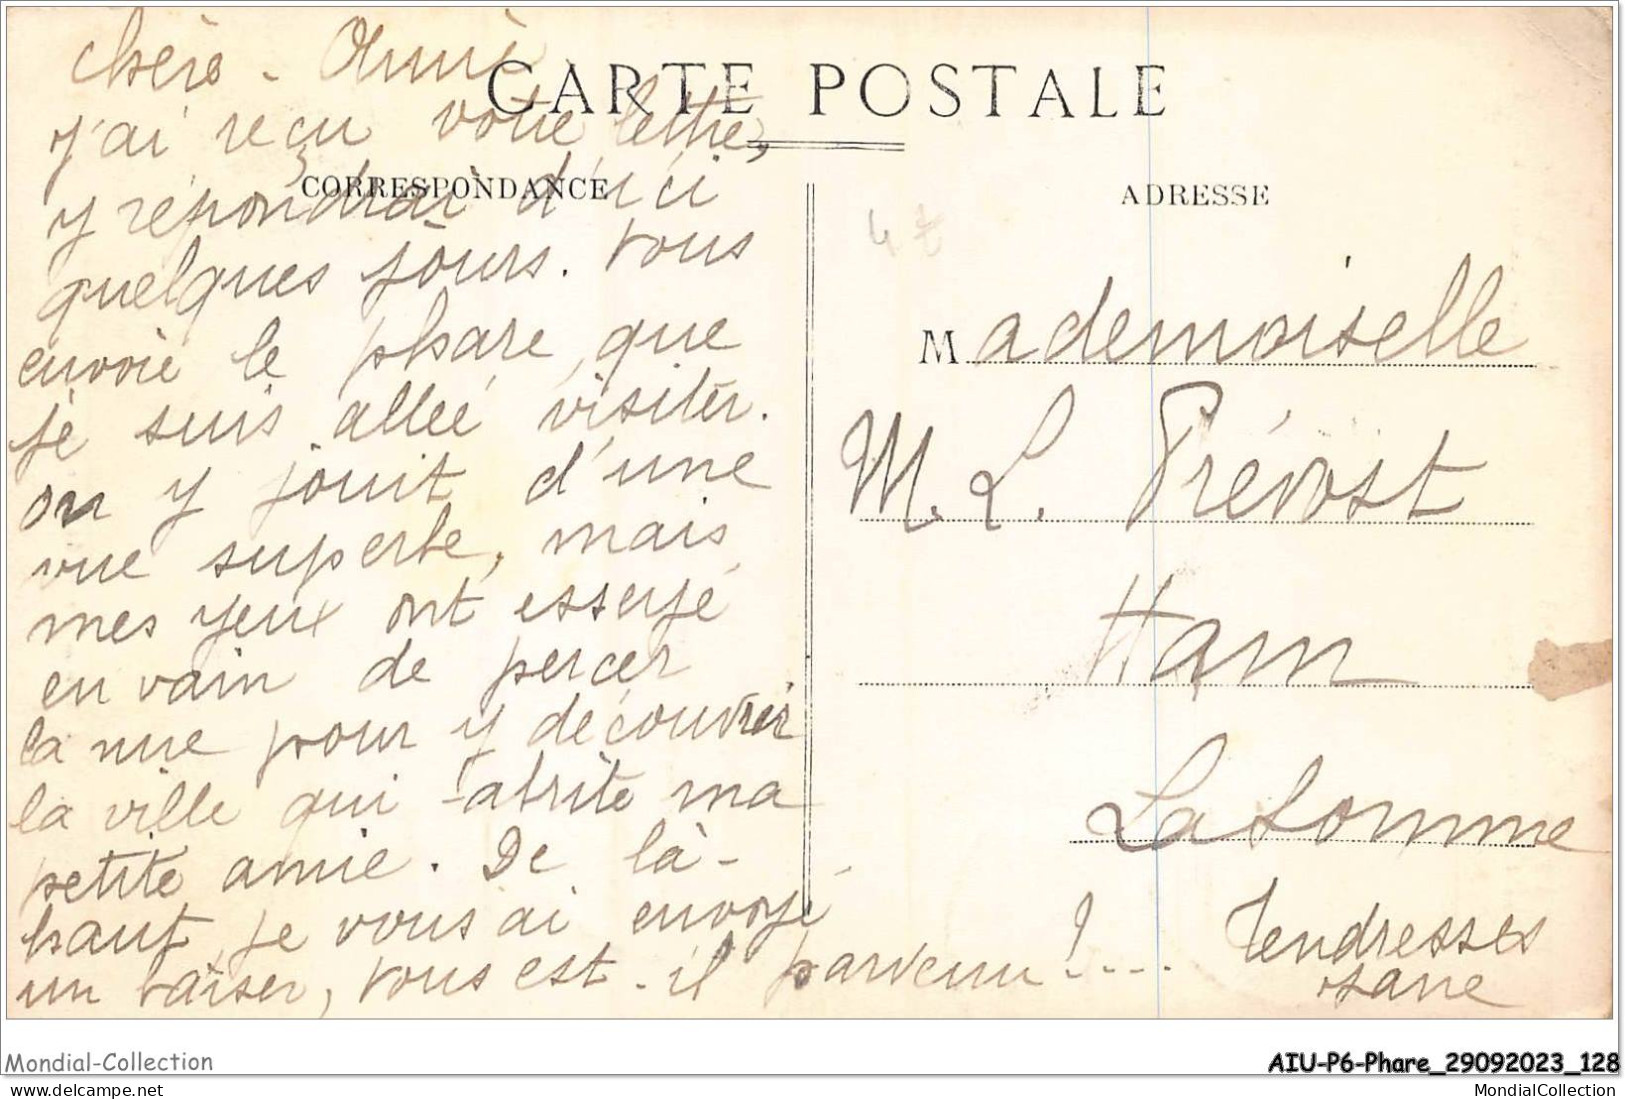 Chère - Amie
CARTE POSTALE
j'ai reçu votre lettre,
CORRESPONDANCE
y répondrai d'ici
quelques jours. Vous
envoie le phare que
je suis allée visiter.
on y jouit d'une
vue superbe, mais
mes yeux ont essayé
en vain de percer
la nue pour y découvrir
la ville qui abrite ma
petite amie. De là-
haut je vous ai envoyé
un baiser, vous est-il parvenu !....
ADRESSE
Mademoiselle
M. L. Prévost
Ham
La Somme
Tendresses
Mondial-Collection
AIU-P6-Phare_29092023_128
MondialCollection